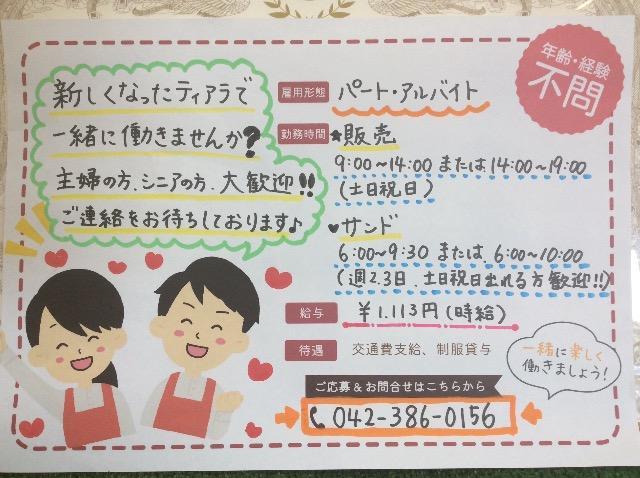 年齢・経験
不問
新しくなったティアラで
一緒に働きませんか?
主婦の方、シニアの方、大歓迎!!
ご連絡をお待ちしております♪
雇用形態 パート・アルバイト
勤務時間 ★販売
9:00~14:00 または 14:00~19:00
(土日祝日)
♥サンド
6:00~9:30 または 6:00~10:00
(週2.3日、土日祝日出れる方歓迎!!)
給与 ¥1.113円(時給)
待遇 交通費支給、制服貸与
一緒に楽しく
働きましょう!
ご応募&お問合せはこちらから
042-386-0156